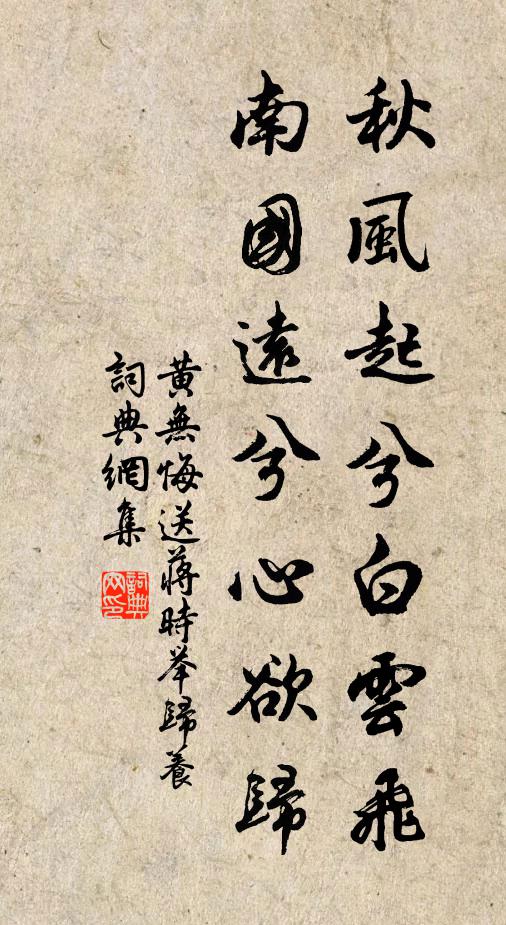 秋風起兮白雲飛
南國遠兮心欲歸
黃無悔送蔣時举歸養
詞典網集
詞典
网印